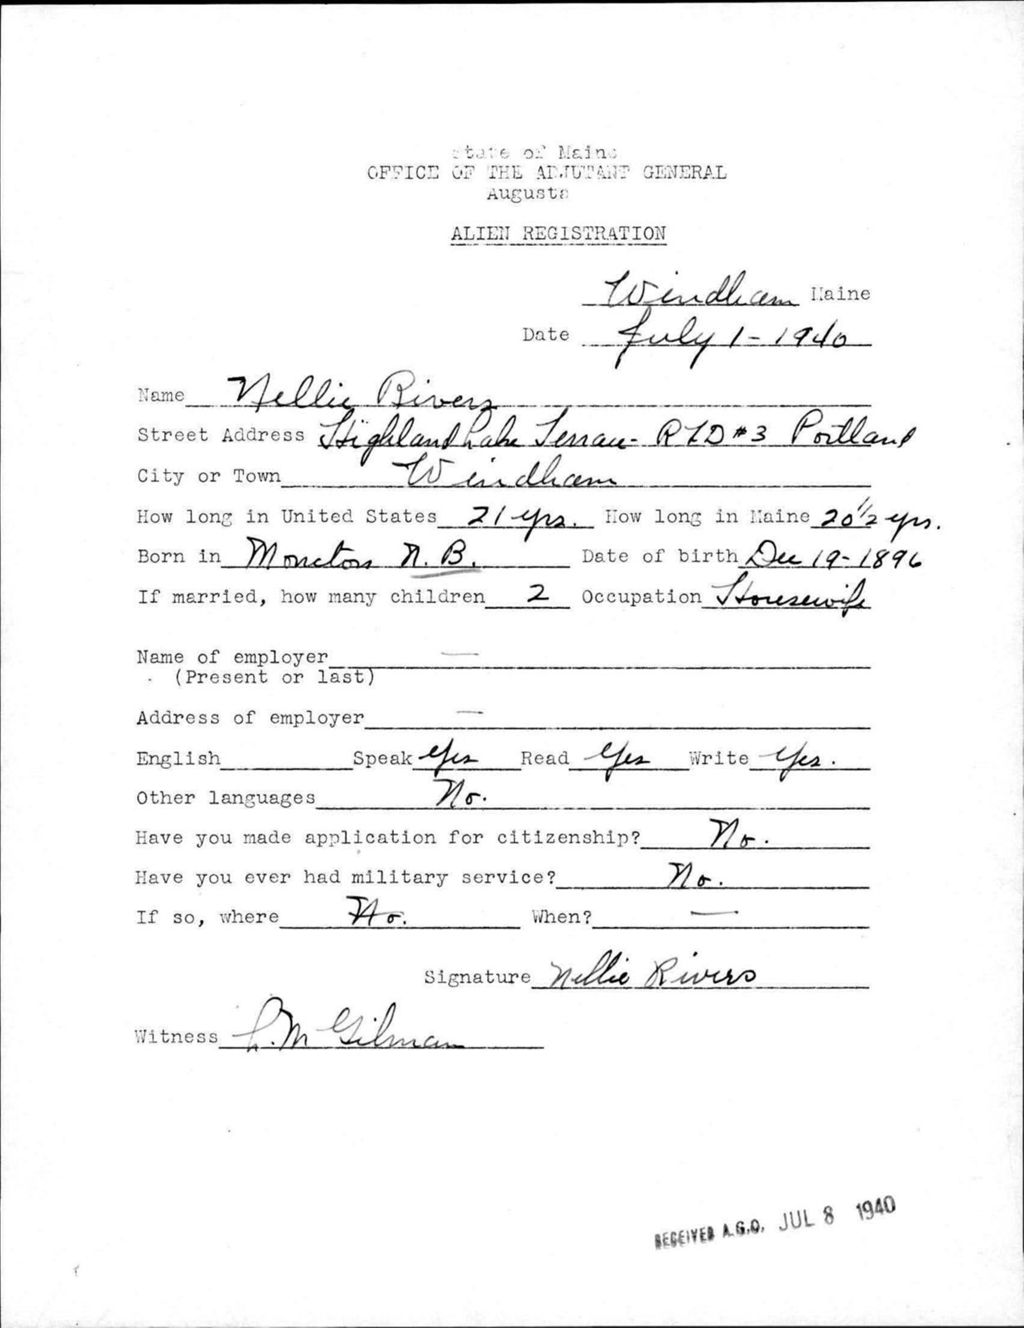 State of Maine
OFFICE OF THE ADJUTANT GENERAL
Augusta
ALIEN REGISTRATION
Windham Maine
Date July 1 - 1940
Name Nellie Rivers
Street Address Highland Lake Terrace - RFD #3 Portland
City or Town Windham
How long in United States 21 yrs. How long in Maine 20 1/2 yrs.
Born in Moncton N.B. Date of birth Dec 19 - 1896
If married, how many children 2 Occupation Housewife
Name of employer —
(Present or last)
Address of employer —
English Speak Yes Read Yes Write Yes.
Other languages No.
Have you made application for citizenship? No.
Have you ever had military service? No.
If so, where No. When? —
Signature Nellie Rivers
Witness L.M Gilman
RECEIVED A.G.O. JUL 8 1940